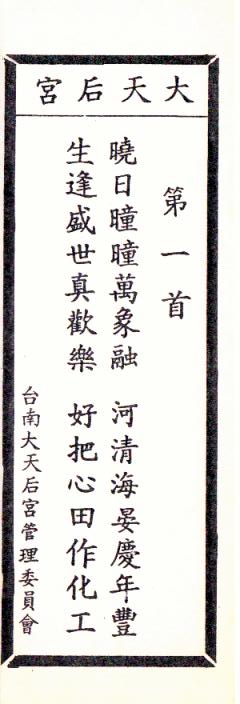 大天后宮
第一首
曉日曈曈萬象融　河清海晏慶年豐
生逢盛世真歡樂　好把心田作化工
台南大天后宮管理委員會